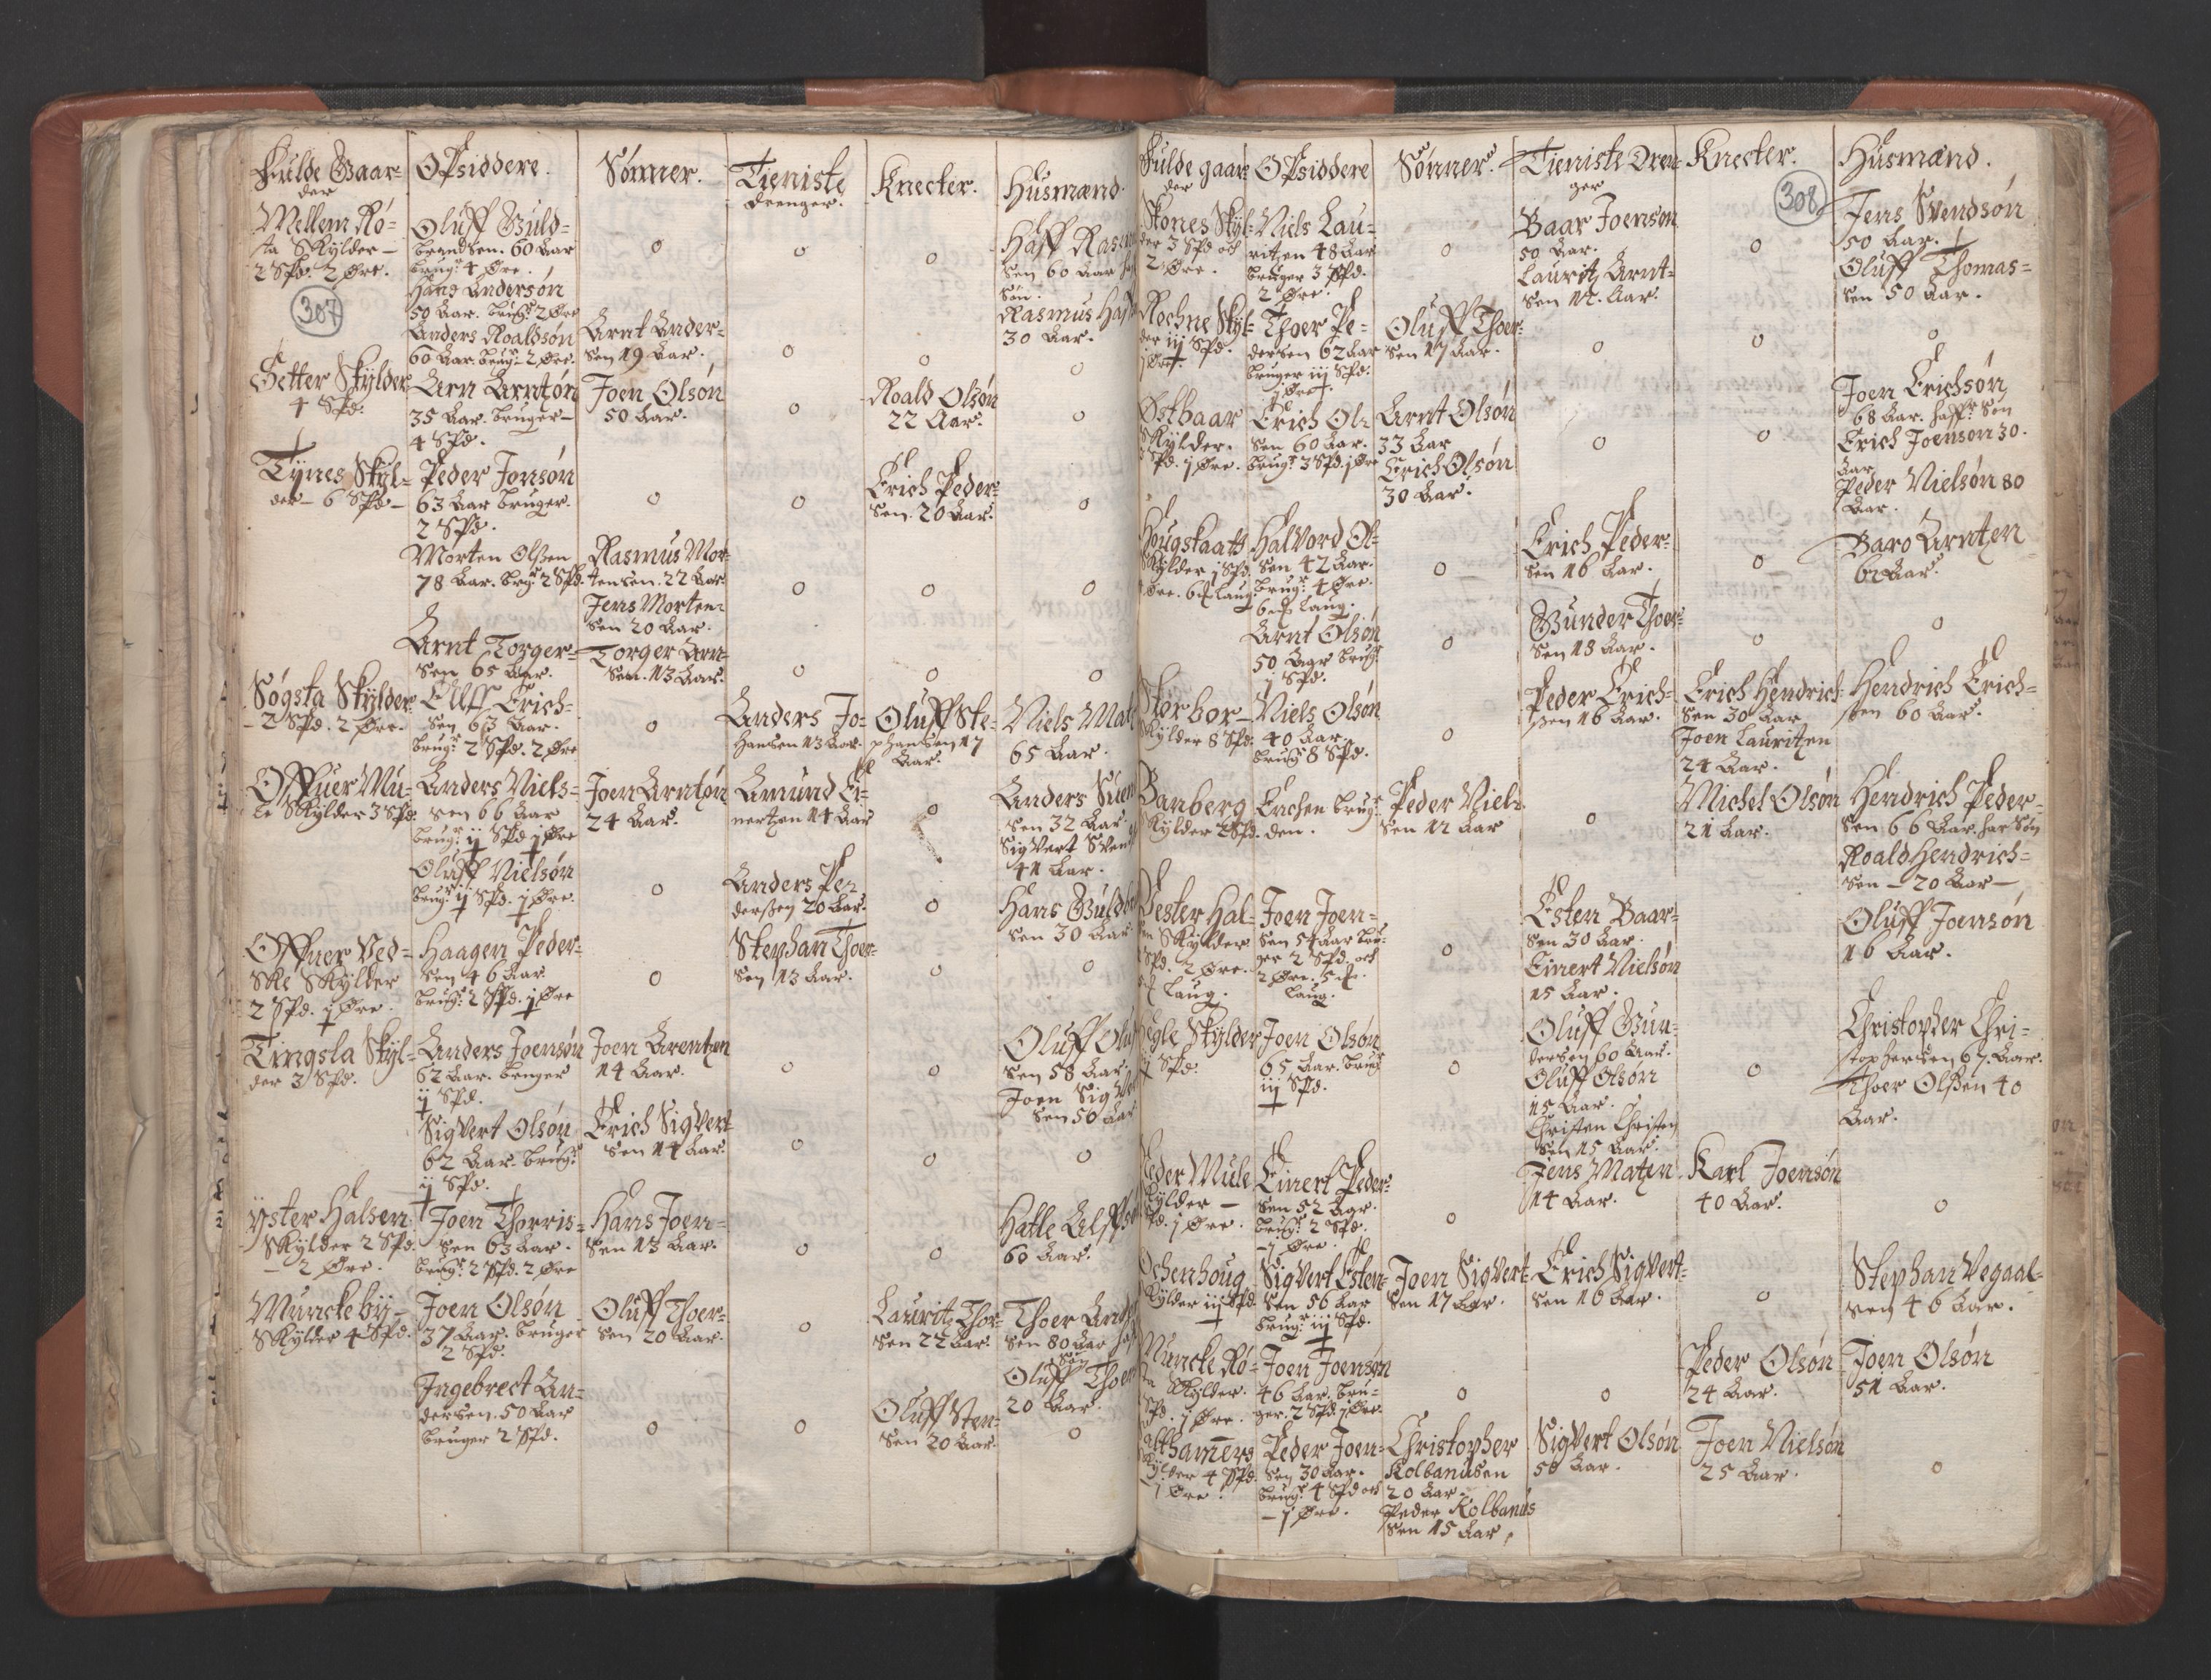 Fulde Gaar-
der
Opsiddere.
Sønner.
Tieniste
drenger.
Knecter.
Husmænd.
Mellem Rø-
sta Skylder -
2 Spd. 2 Øre.
307
Oluff Guld-
brandsen. 60 Aar
brugr 4 Øre.
Hans Andersøn
50 Aar. brugr 2 Øre
Anders Roaldsøn
60 Aar. brugr 2 Øre.
o
Arnt Ander-
sen 19 Aar.
o
o
o
o
Haff
sen 60 Aar
Søn.
Rasmus
30 Aar.
o
Setter Skylder
4 Spd.
Arn Arntøn
35 Aar. bruger -
4 Spd.
Joen Olsøn
50 Aar.
o
Roald Olsøn
22 Aar.
o
Tynes Skyl-
der - 6 Spd -
Peder Jonsøn
63 Aar bruger.
2 Spd.
o
o
Erich Peder-
sen. 20 Aar.
o
Morten Olssen
78 Aar. brugr 2 Spd.
Rasmus Mor-
tensen. 22 Aar
Jens Morten-
sen 20 Aar.
o
o
o
Arnt Torger-
sen 65 Aar.
Torger Arn-
sen. 13 Aar.
o
o
o
Søgsta Skylder
- 2 Spd. 2 Øre.
Elff Erich-
sen 63 Aar.
brugr 2 Spd. 2 Øre
o
Anders Jo-
hansen 13 Aar.
Oluff Ste-
phansen 17
Aar.
Niels
65 Aar.
Offuer Mu-
le Skylder 3 Spd.
Anders Niels-
sen 66 Aar
brugr ij Spd j Øre
Joen Arntøn
24 Aar.
Amund Ei-
nertzen 14 Aar
o
Anders
sen 32 Aar.
Sigvert
41 Aar.
Oluff Nielsøn
brugr ij Spd. j Øre.
o
Anders Pe-
derssen 20 Aar.
o
Hans
sen 30 Aar
Offuer Ved-
ske Skylder
2 Spd. j Øre.
Haagen Peder-
sen 46 Aar.
brugr 2 Spd. j Øre
o
Stephan Thoer-
sen 13 Aar.
o
o
Tingsta Skyl-
der 3 Spd.
Anders Joensøn
62 Aar. bruger
ij Spd.
Joen Arentzen
14 Aar.
o
o
Oluff
sen 58 Aar
Joen
sen 50 Aar
Sigvert Olsøn
62 Aar. brugr
ij Spd.
Erich Sigvert-
sen 14 Aar.
o
o
o
Yster Halsen
Skylder 2 Spd.
- 2 Øre.
Joen Thorris-
sen 63 Aar.
brugr 2 Spd. 2 Øre
Hans Joen-
sen 13 Aar.
o
o
Hatle
60 Aar.
Munckeby -
Skylder 4 Spd.
Joen Olsøn
37 Aar. bruger
2 Spd.
Oluff Thoer-
sen 20 Aar.
o
Lauritz Thor-
sen 22 Aar.
Thoer
sen 80 Aar
Søn
Oluff
20 Aar.
Ingebrect An-
dersen. 50 Aar
bruger 2 Spd.
o
o
Oluff Sten-
sen 20 Aar.
o
Fulde gaar-
der
Opsiddere
Sønner.
Tieniste Dren-
ger
Knecter.
Husmænd.
308
Skones Skyl-
der 3 Spd och
2 Øre.
Niels Lau-
ritzen 48 Aar
bruger 3 Spd.
2 Øre.
o
Baar Joensøn
50 Aar.
Lauritz Arnt-
sen 12. Aar.
o
Jens Svendsøn
50 Aar.
Oluff Thomas-
sen 50 Aar.
Rochne Skyl-
der iij Spd.
j Øre.
Thoer Pe-
dersen 62 Aar
bruger iij Spd.
j Øre.
Oluff Thoer-
sen 17 Aar.
o
o
o
Østbaar
Skylder.
Spd. j Øre.
Erich Ol-
sen 60 Aar.
brugr 3 Spd. j Øre
Arnt Olsøn
33 Aar
Erich Olsøn
30 Aar.
o
o
Joen Erichsøn
68 Aar. haffr Søn
Erich Joensøn 30.
Aar
Peder Nielsøn 80
Aar.
Hougskaatt
Skylder j Spd.
Øre. 6 laug.
Halvord Ol-
sen 42 Aar.
brugr 4 Øre.
6 laug.
o
Erich Peder-
sen 16 Aar.
o
Baro Arntzen
62 Aar.
Arnt Olsøn
50 Aar brugr
j Spd.
o
Gunder Thoer-
sen 13 Aar.
o
o
Storbor -
Skylder 8 Spd.
Niels Olsøn
40 Aar.
brugr 8 Spd.
o
Peder Erich-
ssen 16 Aar.
Erich Hendrich-
sen 30 Aar
Joen Lauritzen
24 Aar.
Hendrich Erich-
ssen 60 Aar.
Banberg
Skylder 2 Spd.
Enchen brugr
den.
Peder Niel-
sen 12 Aar
o
Michel Olsøn
21 Aar.
Hendrich Peder-
sen 66 Aar. har Søn
Roald Hendrich-
sen - 20 Aar -
Vester Hal-
sen Skylder
Spd. 2 Øre.
laug.
Joen Joen-
sen 54 Aar bru-
ger 2 Spd. och
2 Øre. 5
laug.
o
Esten Baar-
sen 30 Aar.
Einert Nielsøn
15 Aar.
Oluff Joensøn
16 Aar.
Skylder
Spd.
Joen Olsøn
65 Aar. brugr
iij Spd.
o
Oluff Gun-
dersen 60 Aar.
Oluff Olsøn
15 Aar.
Christen Christen
sen 15 Aar.
o
Christopher Chri-
stophersen 67. Aar.
Thoer Olssen 40
Aar.
Neder Mule
Skylder -
Spd. j Øre.
Einert Peder-
sen 52 Aar.
brugr 2 Spd.
- j Øre.
o
Jens Matzen
14 Aar.
Karl Joensøn
40 Aar.
o
Ochenhoug
Skylder iij Spd
Sigvert Esten-
sen 56 Aar
brugr iij Spd.
Joen Sigvert-
sen 17 Aar.
Erich Sigvert-
sen 16 Aar.
o
Stephan Vegaal-
sen 46 Aar.
Muncke Rø-
sta Skylder.
Spd. j Øre.
Joen Joensøn
46 Aar. bru-
ger. 2 Spd. j Øre.
o
o
Peder Olsøn
24 Aar.
Joen Olsøn
51 Aar.
Skylder 4 Spd.
j Øre.
Peder Joen-
sen 30 Aar.
brugr 4 Spd och
- j Øre.
Christopher
Kolbanusen
20 Aar.
Peder Kolbanus
sen 15 Aar.
Sigvert Olsøn
50 Aar.
Joen Nielsøn
25 Aar.
o